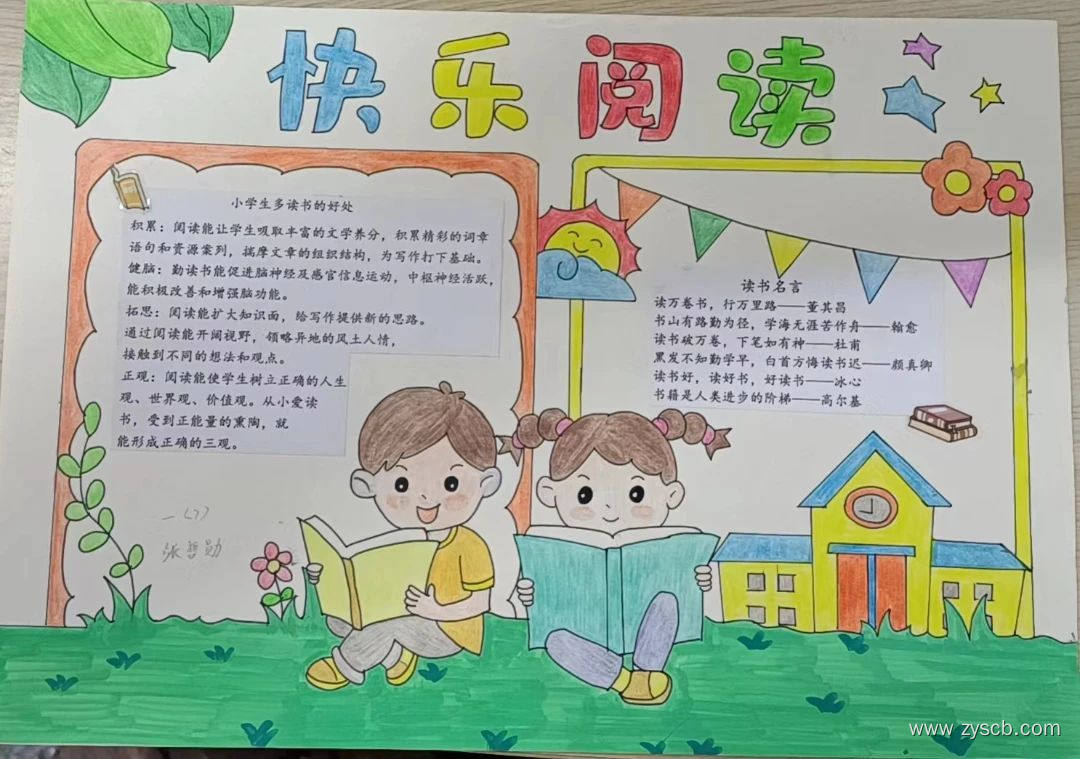 快乐阅读
小学生多读书的好处
积累：阅读能让学生吸取丰富的文学养分，积累精彩的词章
语句和资源案列，揣摩文章的组织结构，为写作打下基础。
健脑：勤读书能促进脑神经及感官信息运动，中枢神经活跃，
能积极改善和增强脑功能。
拓思：阅读能扩大知识面，给写作提供新的思路。
通过阅读能开阔视野，领略异地的风土人情，
接触到不同的想法和观点。
正观：阅读能使学生树立正确的人生
观、世界观、价值观。从小爱读
书，受到正能量的熏陶，就
能形成正确的三观。
一（7）
张哲勋
读书名言
读万卷书，行万里路——董其昌
书山有路勤为径，学海无涯苦作舟——翰愈
读书破万卷，下笔如有神——杜甫
黑发不知勤学早，白首方悔读书迟——颜真卿
读书好，读好书，好读书——冰心
书籍是人类进步的阶梯——高尔基
www.zyscb.com